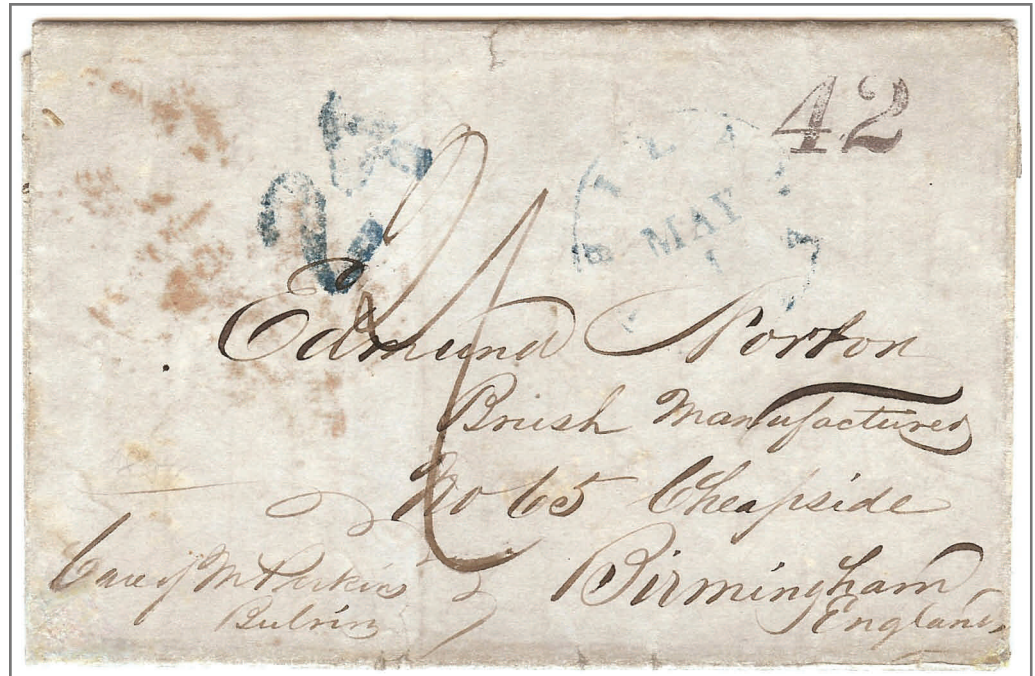 42
24
MAY
1
Edmund Norton
Brush Manufacturer
No 65 Cheapside
Birmingham
England
Care of Mr Perkins